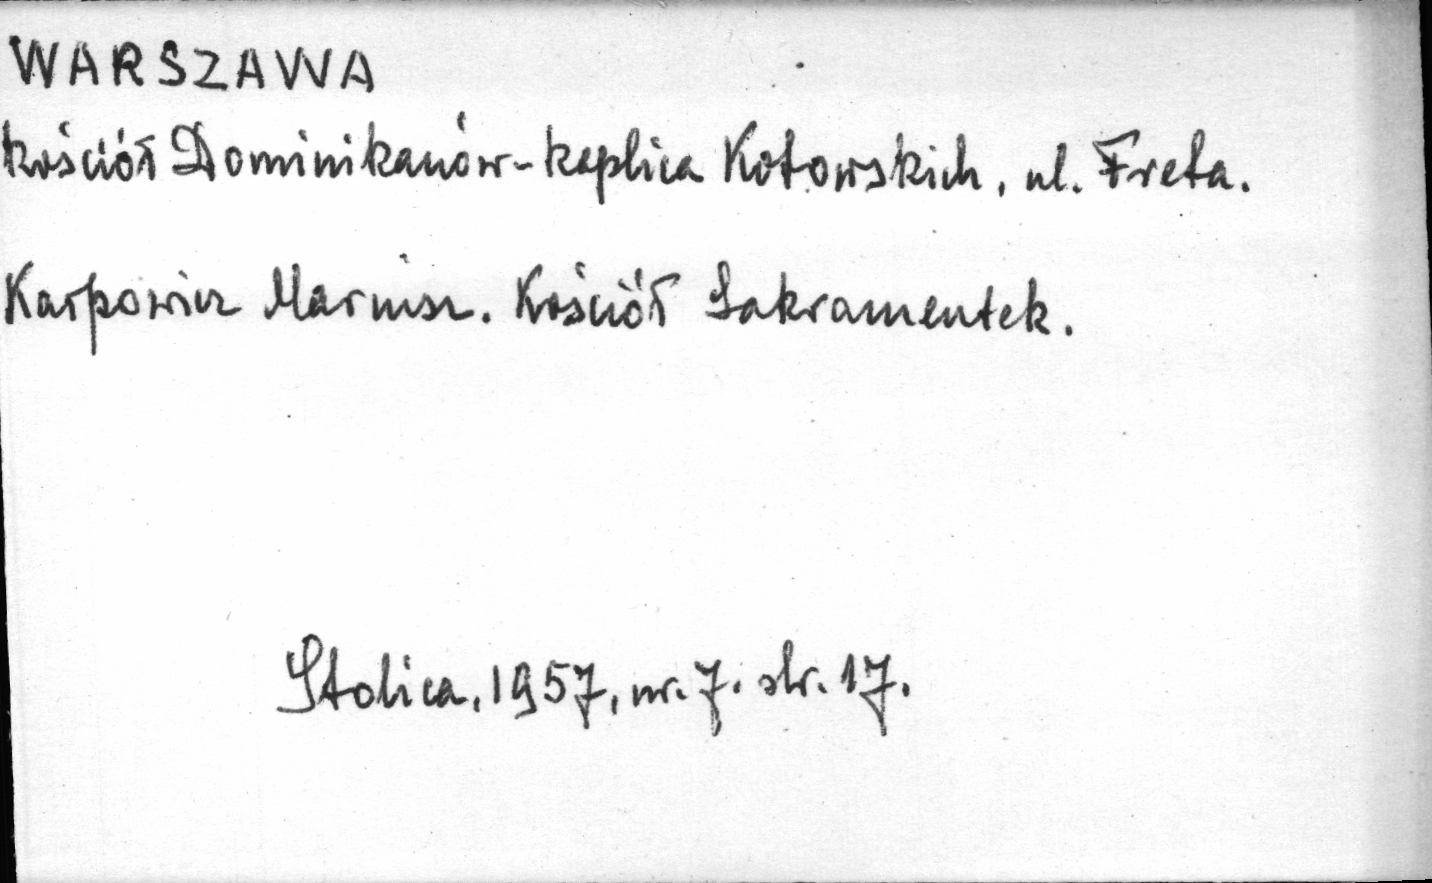 WARSZAWA
kościół Dominikanów - kaplica Kotowskich, ul. Freta.
Karpowicz Mariusz. Kościół Sakramentek.
Stolica, 1957, nr. 7. str. 17.